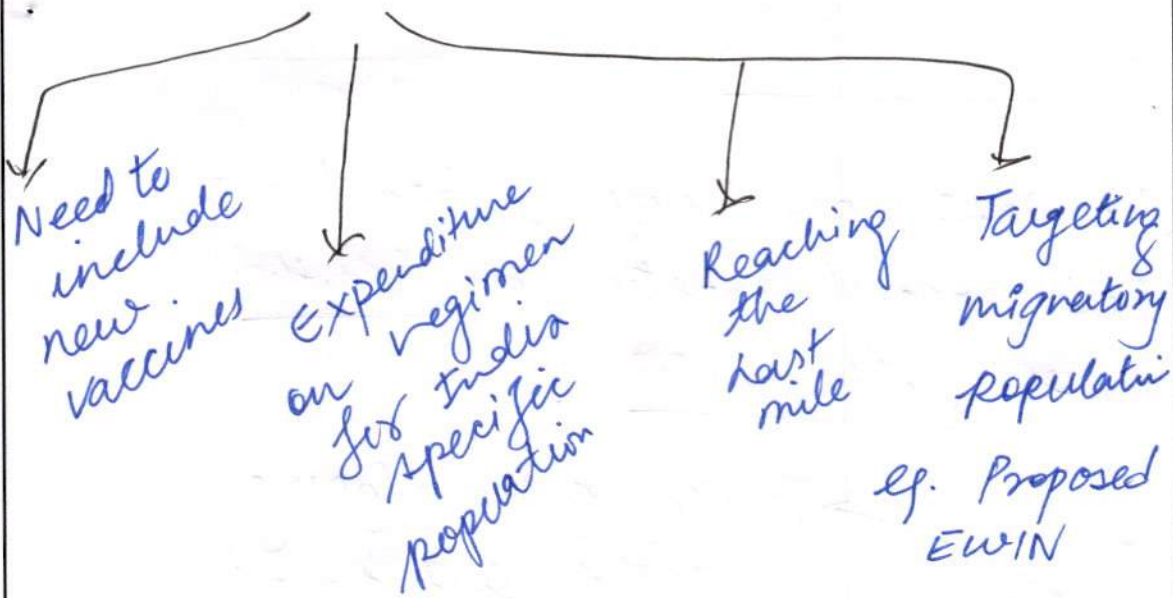 Need to
include
new
vaccines
Expenditure
on regimen
for India
specific
population
Reaching
the
Last
mile
Targeting
migratory
populatin
eg. Proposed
EWIN